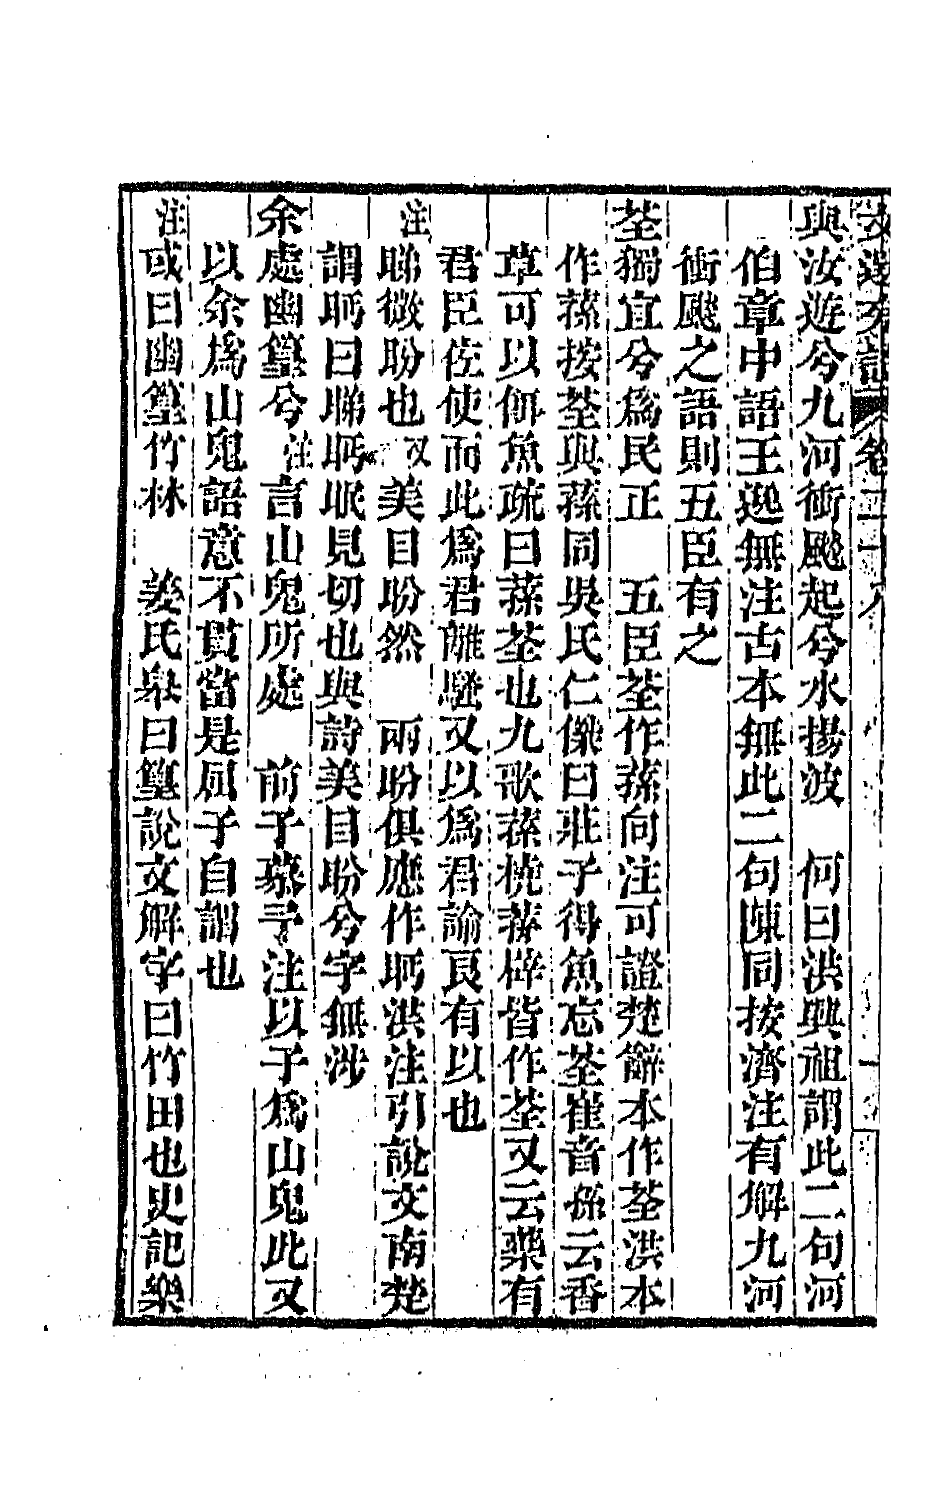 與汝遊兮九河衝飈起兮水揚波　何曰洪興祖謂此二句河
伯章中語王逸無注古本無此二句陳同按濟注有解九河
衝飈之語則五臣有之
荃獨宜兮爲民正　五臣荃作蓀向注可證楚辭本作荃洪本
作蓀按荃與蓀同吳氏仁傑曰莊子得魚忘荃崔音孫云香
草可以餌魚疏曰蓀荃也九歌蓀橈蓀壁皆作荃又云藥有
君臣佐使而此爲君離騷又以爲君諭良有以也
注睇微盼也　又美目盼然　兩盼俱應作眄洪注引說文南楚
謂眄曰睇眄眠見切也與詩美目盼兮字無涉
余處幽篁兮　注言山鬼所處　前子慕予注以子爲山鬼此又
以余爲山鬼語意不貫當是屈子自謂也
注或曰幽篁竹林　姜氏臯曰篁說文解字曰竹田也史記樂